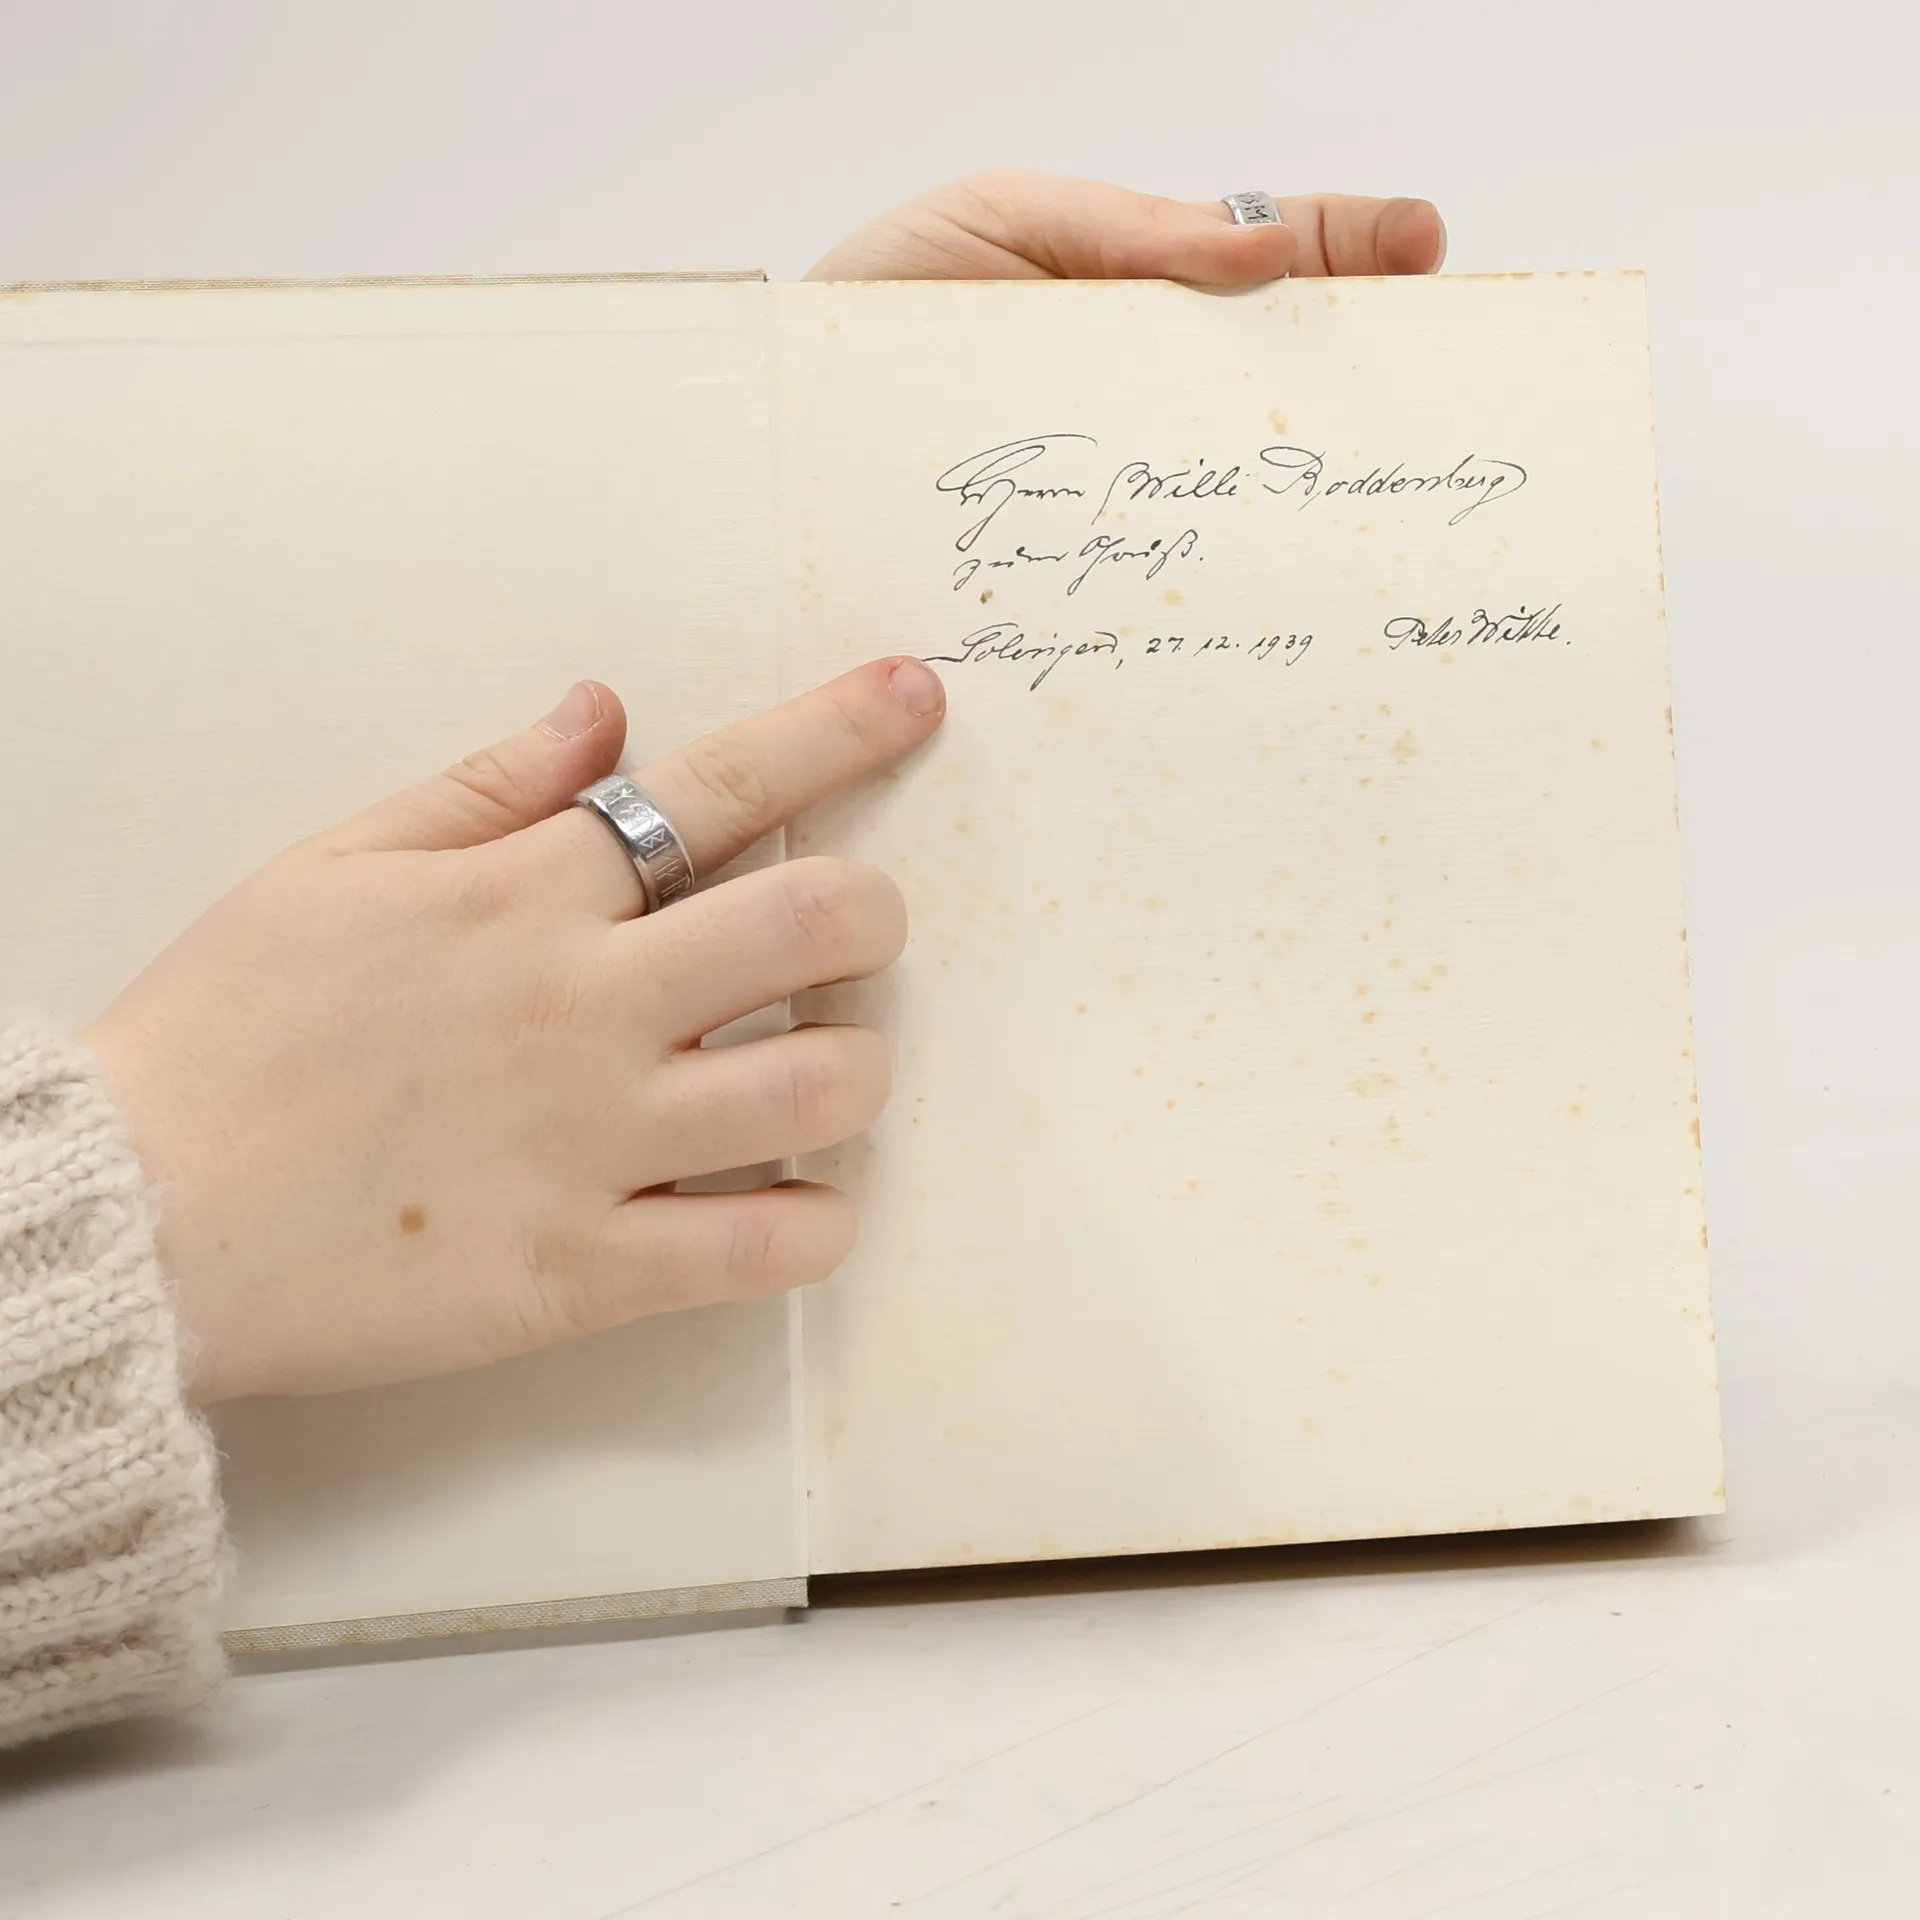 Herrn Willi Roddenburg
zum Gruß.
Solingen, 27. 12. 1939 Peter Witte.